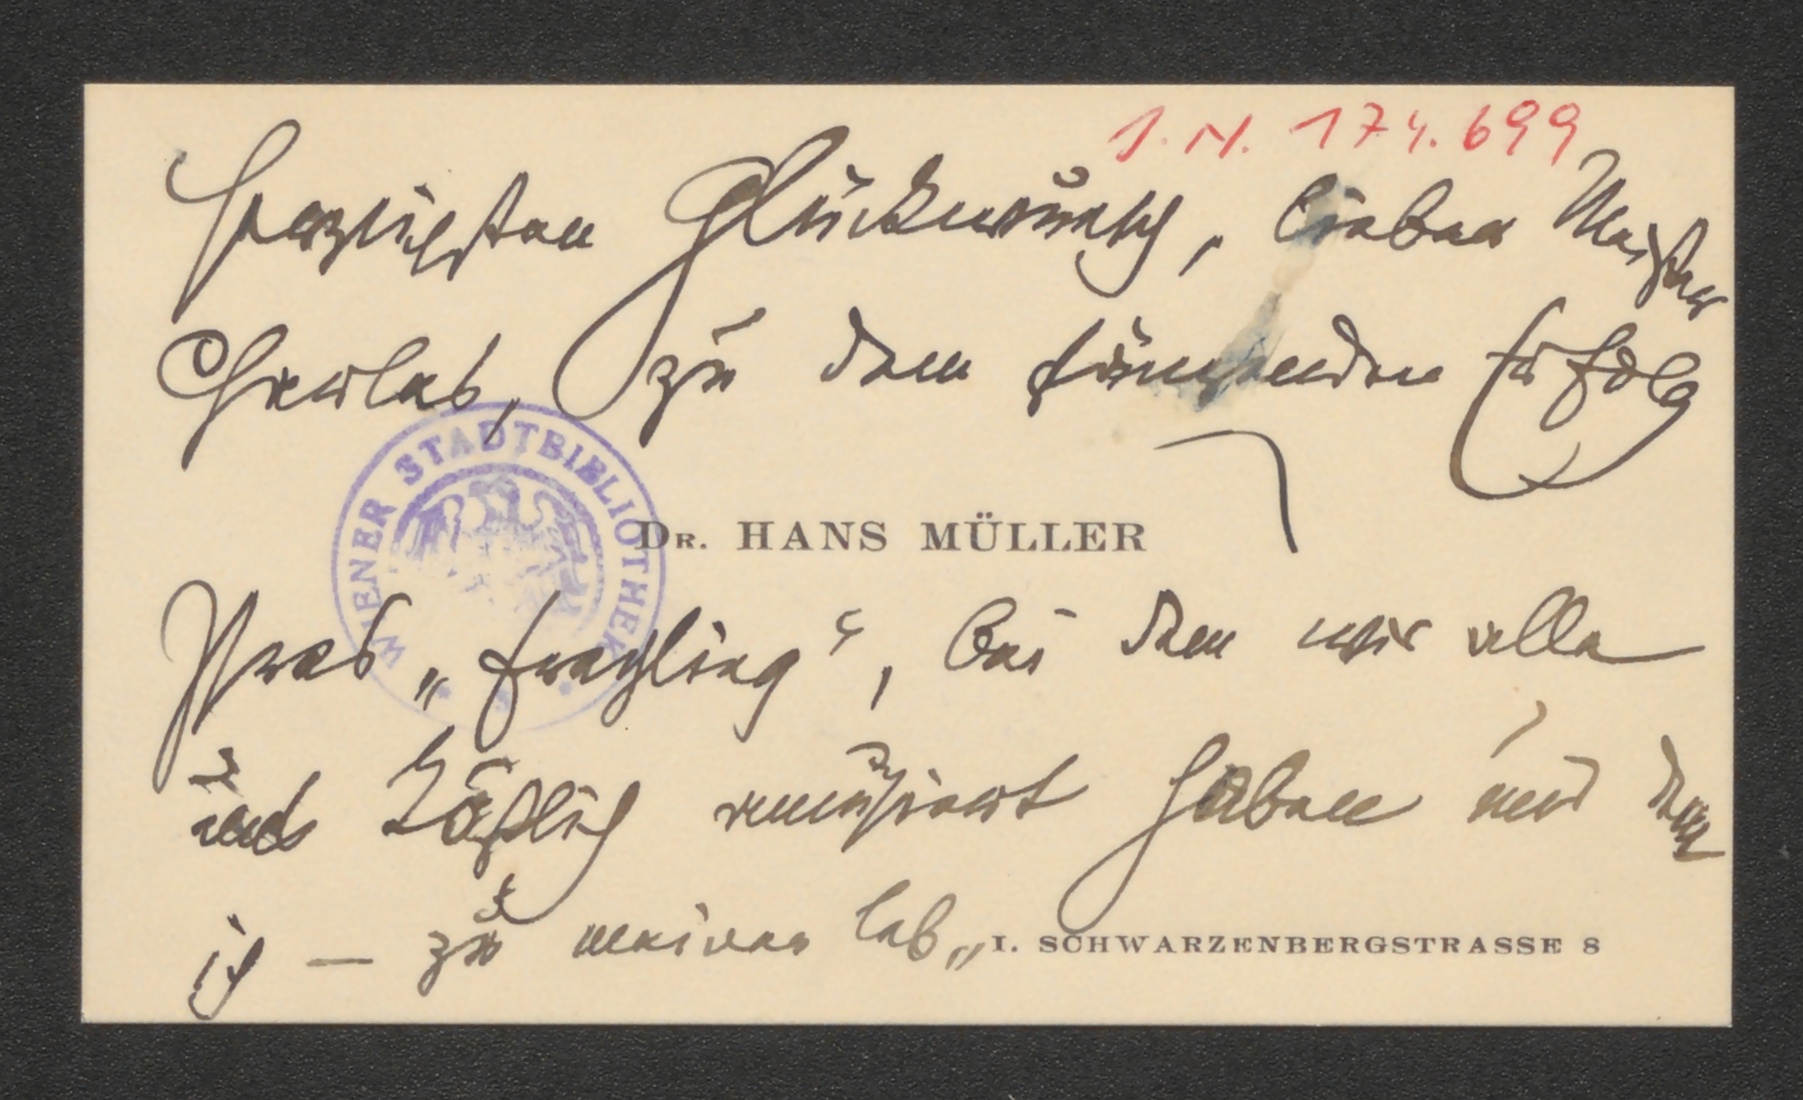 J.N. 174.699
Herzlichsten Glückwunsch, lieber Meister
Charles, zu dem Erfolg
WIENER STADTBIBLIOTHEK
DR. HANS MÜLLER
Ihres „Frechling“, bei dem wir alle
uns köstlich amüsiert haben und den
ich — zu meiner leb„
I. SCHWARZENBERGSTRASSE 8